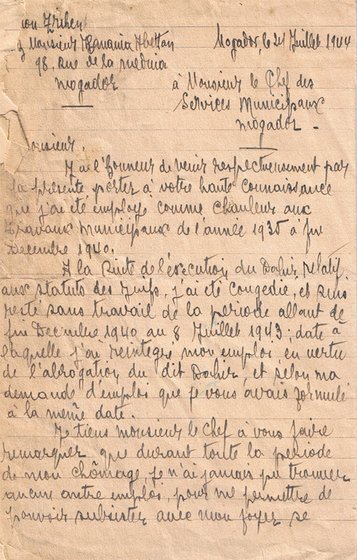 Monsieur
98, rue de la medina
Mogador
Mogador le 21 Juillet 1944
à Monsieur le Chef des
Services Municipaux
Mogador.
Monsieur.
J'ai l'honneur de venir respectueusement par
la présente porter à votre haute connaissance
que j'ai été employé comme chauffeur aux
Travaux Municipaux de l'année 1930 à fin
Decembre 1940.
A la suite de l'éxécution du Dahir relatif
aux statuts des Juifs, j'ai été congedié, et suis
resté sans travail de la periode allant de
fin Decembre 1940 au 8 Juillet 1943; date à
laquelle j'ai reintegré mon emploi en vertu
de l'abrogation du dit Dahir, et selon ma
demande d'emploi que je vous avais formulé
à la même date.
Je tiens monsieur le Chef à vous faire
remarquer que durant toute la periode
de mon chômage, je n'ai jamais pu trouver
aucun autre emploi, pour me permettre de
pouvoir subsister avec mon foyer se